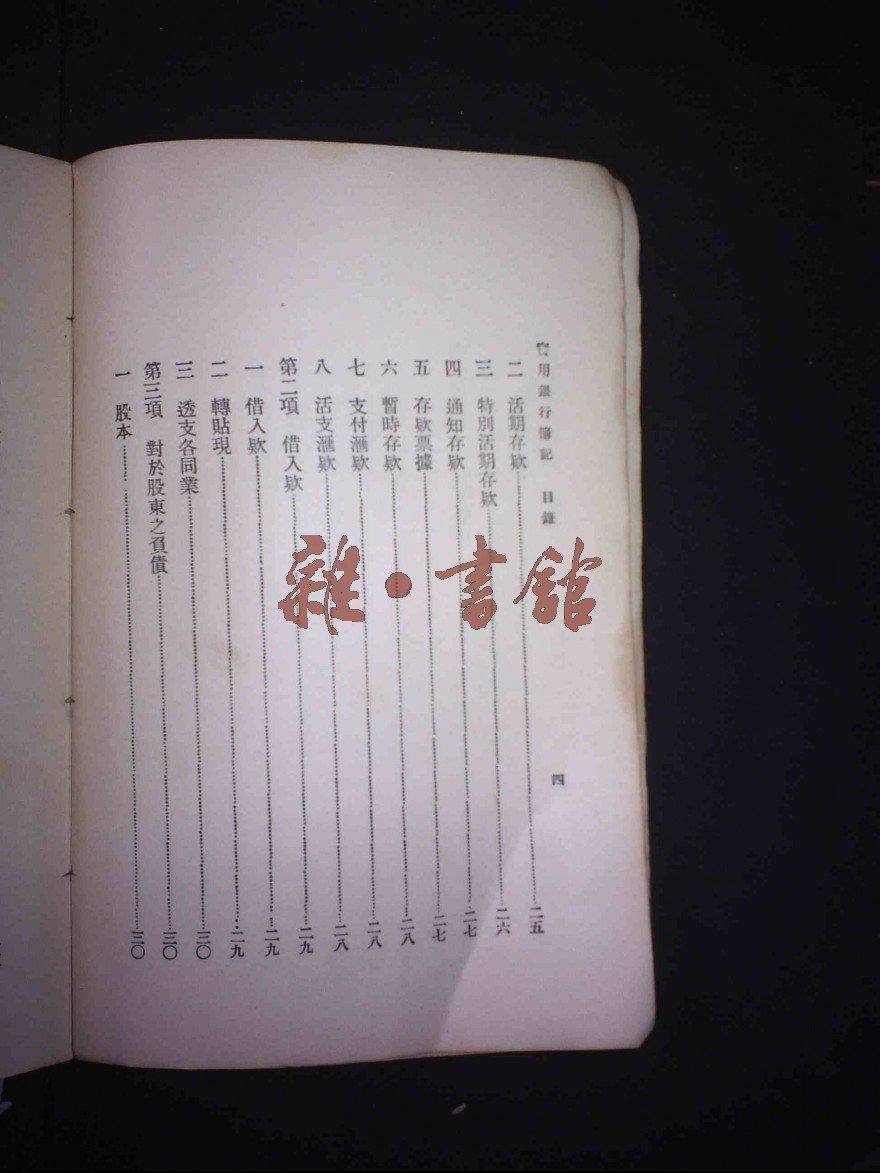 實用銀行簿記 目錄 四
二 活期存欵 二五
三 特別活期存欵 二六
四 通知存欵 二七
五 存欵票據 二七
六 暫時存欵 二八
七 支付滙欵 二八
八 活支滙欵 二八
第二項 借入欵 二九
一 借入欵 二九
二 轉貼現 二九
三 透支各同業 三〇
第三項 對於股東之負債 三〇
一 股本 三〇
雜·書館